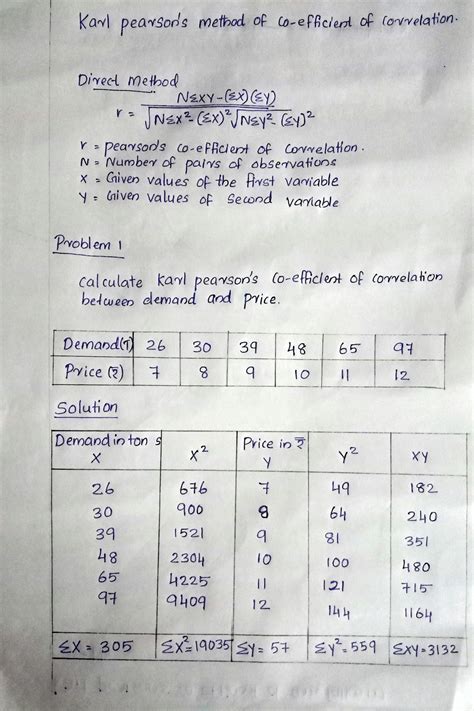 Karl pearson's method of co-efficient of correlation.
Direct Method
r = NΣXY-(ΣX)(ΣY) / √NΣX²-(ΣX)² √NΣY²-(ΣY)²
r = pearson's co-efficient of correlation.
N = Number of pairs of observations
X = Given values of the first variable
Y = Given values of second variable
Problem 1
calculate Karl pearson's co-efficient of correlation
between demand and price.
Demand(T) 26 30 39 48 65 97
Price (₹) 7 8 9 10 11 12
Solution
Demand in ton s X X² Price in ₹ Y Y² XY
26 676 7 49 182
30 900 8 64 240
39 1521 9 81 351
48 2304 10 100 480
65 4225 11 121 715
97 9409 12 144 1164
ΣX = 305 ΣX²=19035 ΣY= 57 ΣY²=559 ΣXY=3132